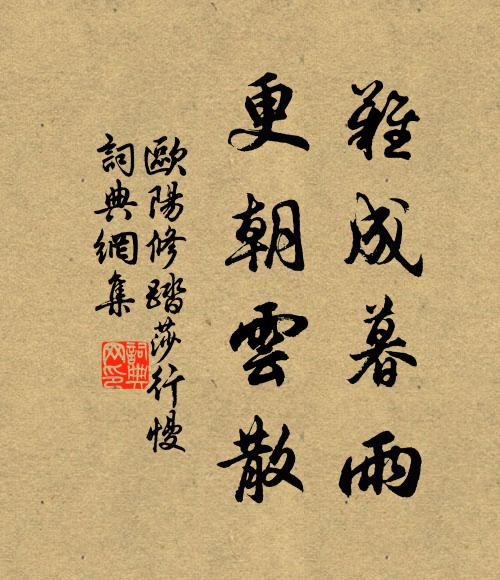 難成暮雨
更朝雲散
歐陽修踏莎行慢
詞典網集
詞典
网印